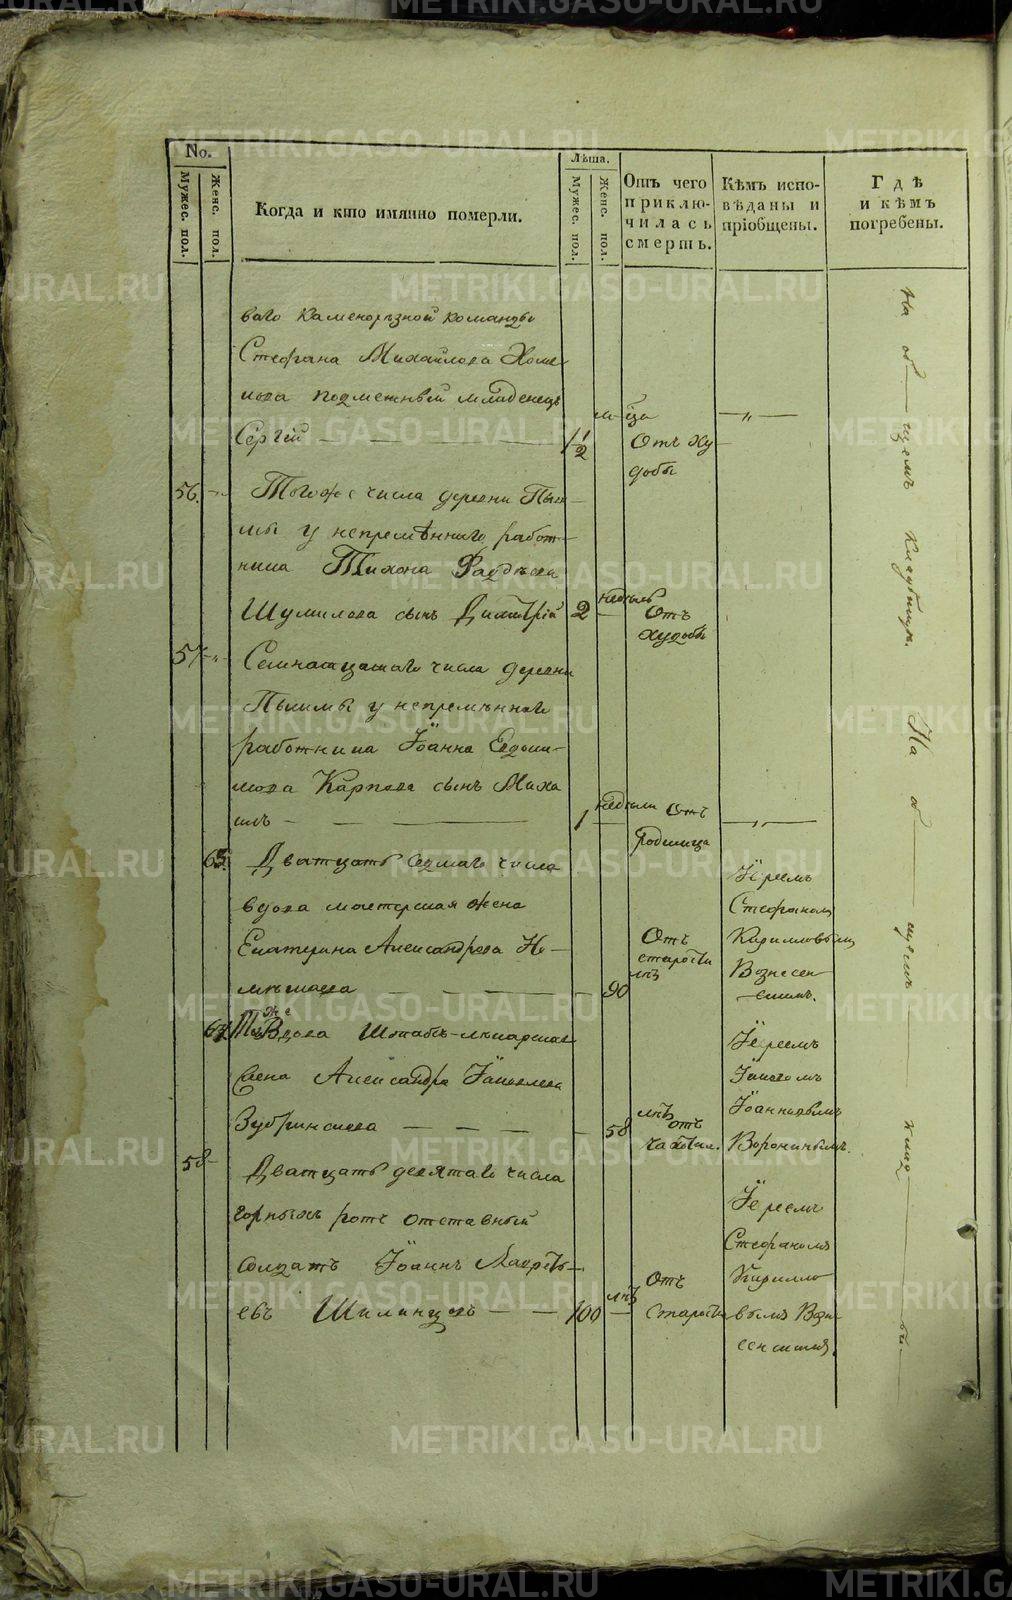 No.
Мужес. пол.
Женс. пол.
Когда и кто имянно померли.
Лѣта.
Мужес. пол.
Женс. пол.
Отъ чего
приклю-
чилась
смерть.
Кѣмъ испо-
вѣданы и
пріобщены.
Гдѣ
и кѣмъ
погребены.
ваго каменорѣзной команды
Стефана Михайлова
подметный младенецъ
Сергій 1 1/2 м-ца Отъ ху
добы
56. Тогоже числа деревни Пыш-
мы у непремѣннаго работ-
ника Тихона
Шумилова сынъ Димитрій 2 недѣль Отъ
худобы
57 Семнатцатаго числа деревни
Пышмы у непремѣннаго
работника Іоанна Евдоки-
мова Карпова сынъ Миха
илъ 1 недѣли Отъ
родимца
63. Дватцать седмаго числа
вдова мастерская жена
Екатерина Александрова
90 лѣтъ Отъ
старости
Іереемъ
Стефаномъ
Кирилловымъ
Вознесен-
скимъ.
Тогоже Вдова Штабъ-лѣкарская
жена Александра Іаковлева
Зубринскова 58 лѣтъ отъ
чахотки.
Іереемъ
Іаковомъ
Іоанновымъ
Воронинымъ.
58 Дватцать девятаго числа
горныхъ ротъ отставный
солдатъ Іоаннъ Лаврентъ-
евъ Шилинцовъ 100 лѣтъ Отъ
старости
Іереемъ
Стефаномъ
Кирилло
вымъ Возне
сенскимъ.
На об щемъ кладбищѣ.
На о щемъ клад би
METRIKI.GASO-URAL.RU